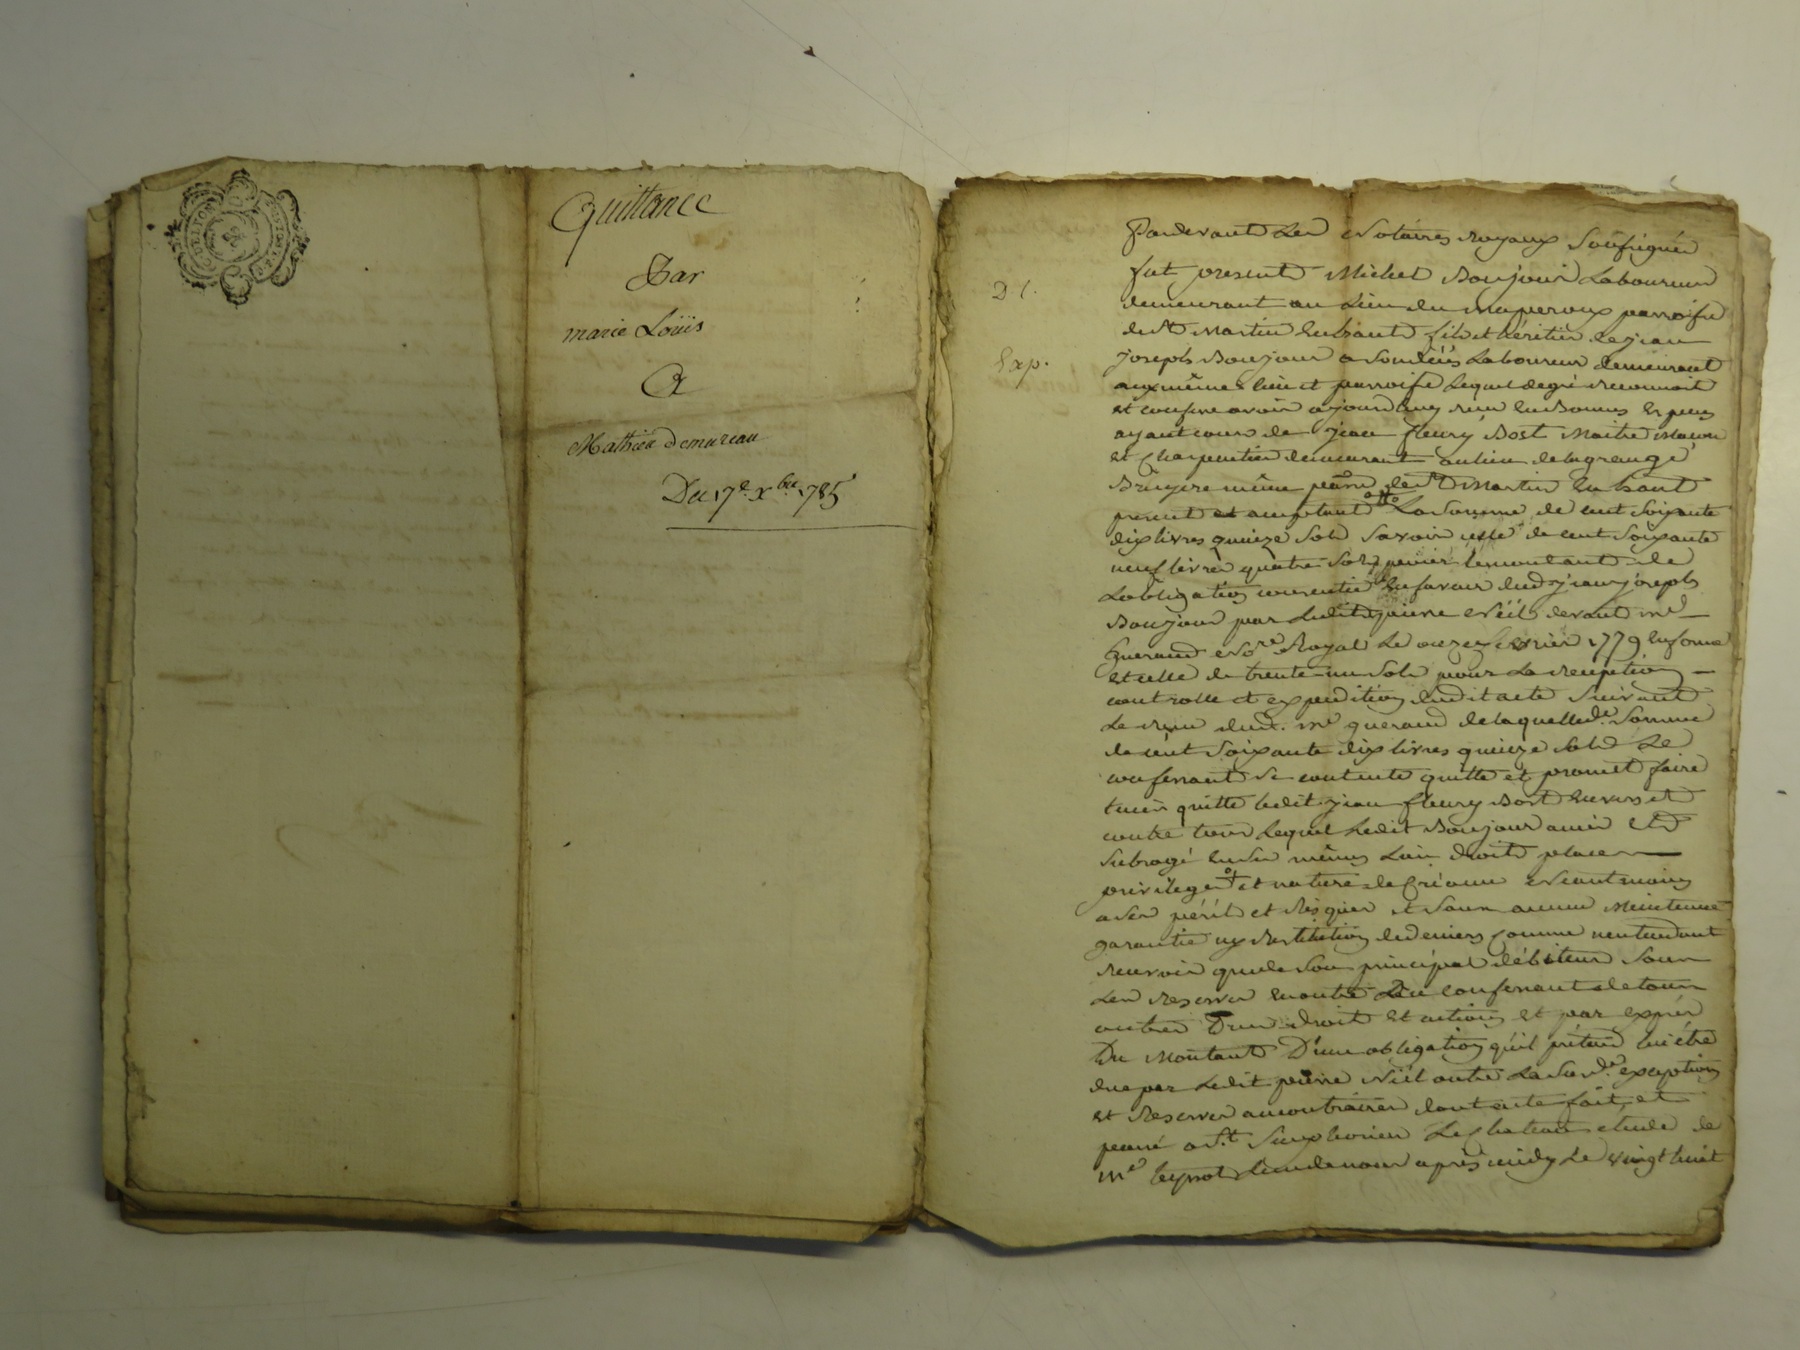 Quittance
Par
marie Loüis
A
Mathieu Demureau
Du 17e Xbre 1785
D t.
Exp.
Pardevant Les Notaires Royaux Soussignés
fut present Michel Boujour Laboureur
demeurant au Lieu du Maperoux parroisse
de St Martin Enhaut fils et héritier de jean
joseph Boujour Laboureur demeurant
aux mêmes lieu et parroisse Lequel de gré reconnoit
et confesse avoir aujourdhuy reçu En Bonnes Especes
ayant cours de jean fleury Bost Maitre Maçon
et Charpentier demeurant au lieu de la grange
Bruyere même parsse de St Martin En haut
present et acceptant La Somme de cent Soixante
dix livres quinze Sols Savoir celle de cent Soixante
neuf livres quatre Sols pour le montant de
Lobligation consentie En faveur dud. jean joseph
Boujour par Ledit pierre Niél devant me
Guerand Nore Royal Le onze fevrier 1779 En forme
et celle de trente un Sols pour La reception
controlle et expedition dudit acte Suivant
Le reçu dud. me guerand de laquelle de Somme
de cent Soixante dix livres quinze Sols Le
confessant Se contente quitte et promet faire
tenir quitte Ledit jean fleury Bost Envers et
contre tous Lequel Ledit Boujour a mis Et
Subrogé En Ses mêmes Lieu droits place
privileges et nature de Créance Néantmoins
a Ses périls et Risques et Sans aucune Maintenue
garantie ny Restitution de deniers Comme nentendant
recevoir que de Son principal débiteur Sous
Les Reserves En outre du confessant de tous
autres Dus droits et actions et par exprés
Du Montant D'une obligation qu'il prétend lui être
due par Ledit pierre Niél outre La Sus de exception
et Reserves au contraires dont acte fait et
passé a St Simphorien Le chateau etude de
me Leynot Lun de nous aprés midy Le vingt huit